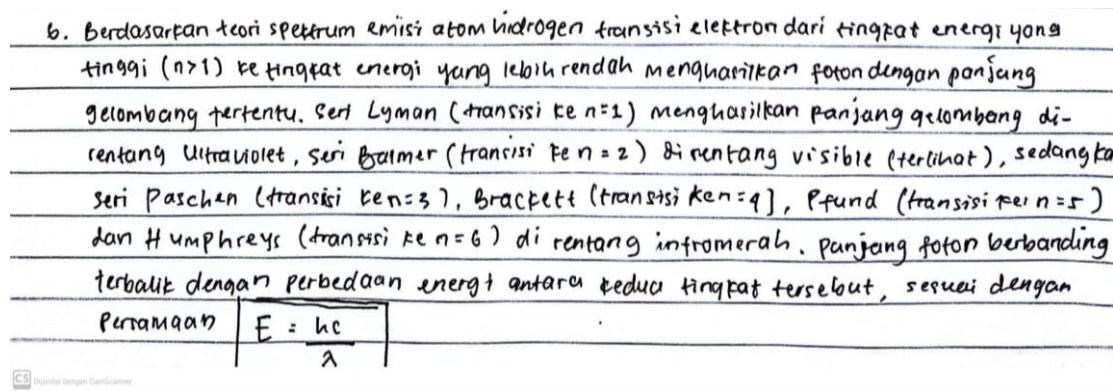 6. Berdasarkan teori spektrum emisi atom hidrogen transisi elektron dari tingkat energi yang
tinggi (n>1) ke tingkat energi yang lebih rendah menghasilkan foton dengan panjang
gelombang tertentu. Seri Lyman (transisi ke n=1) menghasilkan panjang gelombang di-
rentang Ultraviolet, seri Balmer (transisi ke n = 2) di rentang visible (terlihat), sedangka
seri Paschen (transisi ke n=3), Brackett (transisi ke n=4], Pfund (transisi ke n=5)
dan Humphreys (transisi ke n=6) di rentang infromerah. panjang foton berbanding
terbalik dengan perbedaan energi antara kedua tingkat tersebut, sesuai dengan
Persamaan E = hc
λ
CS Dipindai dengan CamScanner